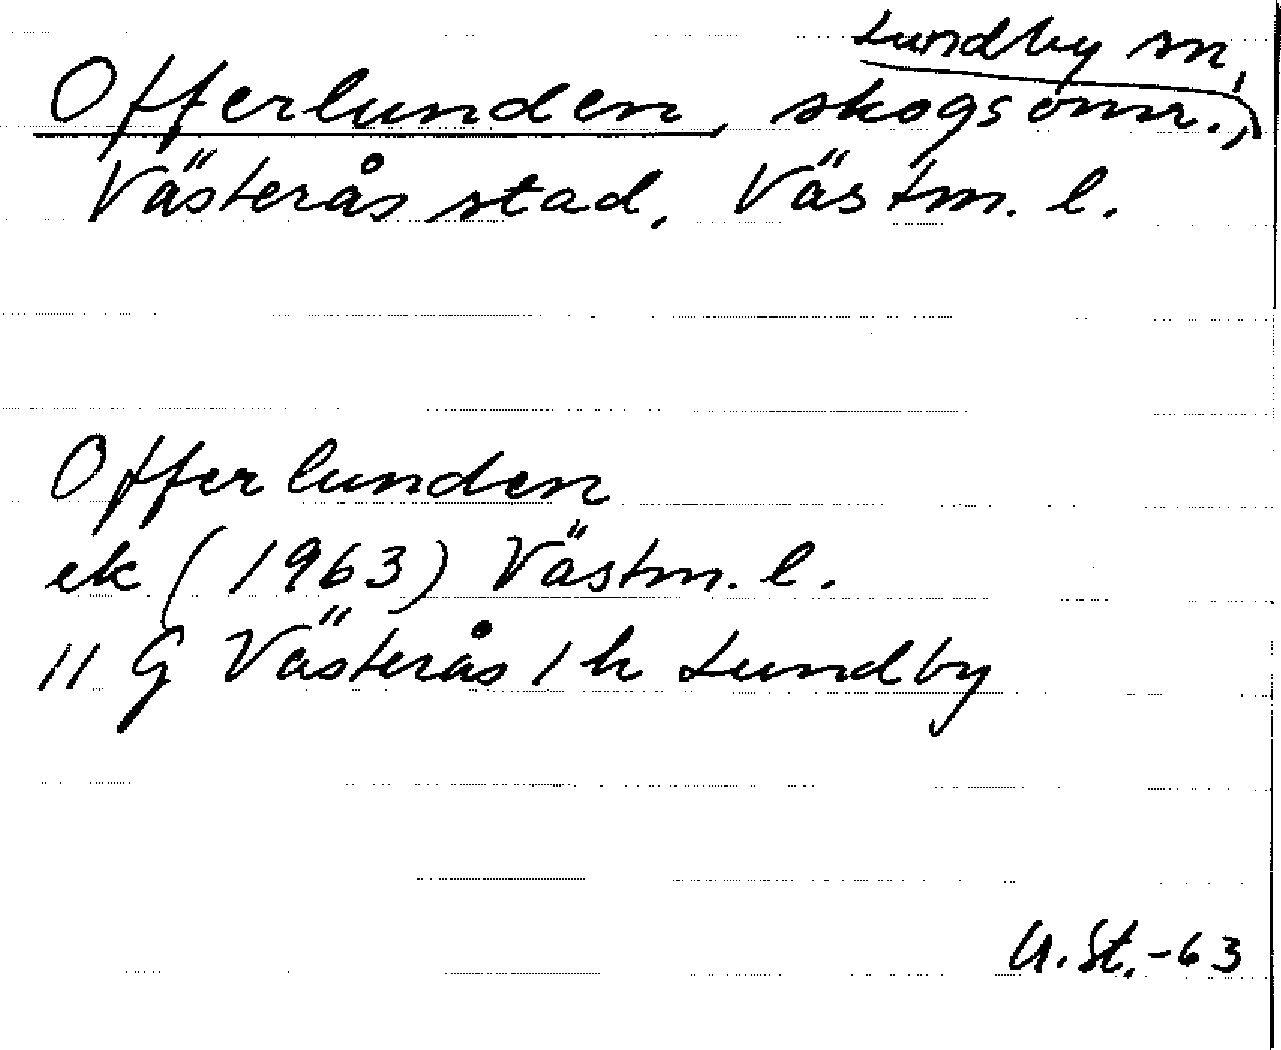 Lundby sn,
Offerlunden, skogsomr.,
Västerås stad, Västm. l.
Offerlunden
ek (1963) Västm. l.
11 G Västerås 1 h Lundby
U.St.-63